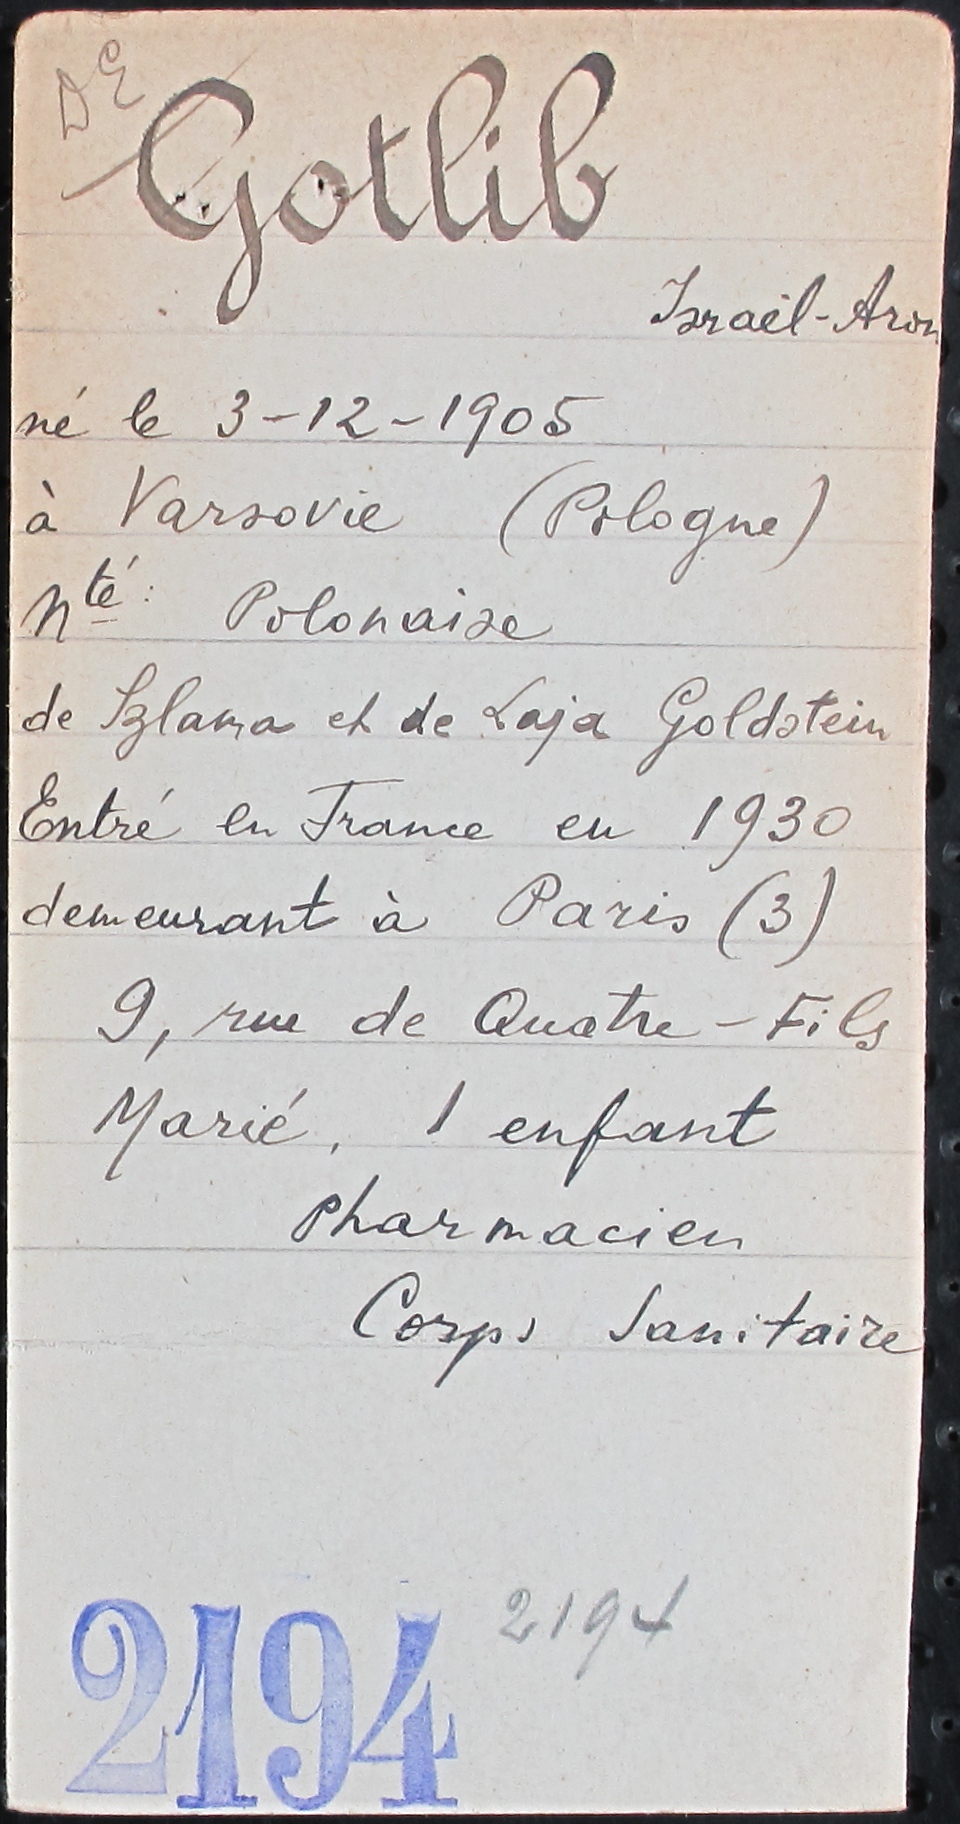 DE
Gotlib
Israël-Aron
né le 3-12-1905
à Varsovie (Pologne)
Nté: Polonaise
de Szlama et de Laja Goldstein
Entré en France en 1930
demeurant à Paris (3)
9, rue de Quatre-Fils
Marié, 1 enfant
Pharmacien
Corps Sanitaire
2194
2194